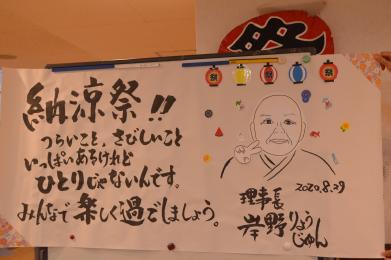 祭
祭 祭 祭
納涼祭!!
つらいこと、さびしいこと
いっぱいあるけれど
ひとりじゃないんです。
みんなで楽しく過でしょう。
2020.8.29
理事長
岸野りょうじゅん